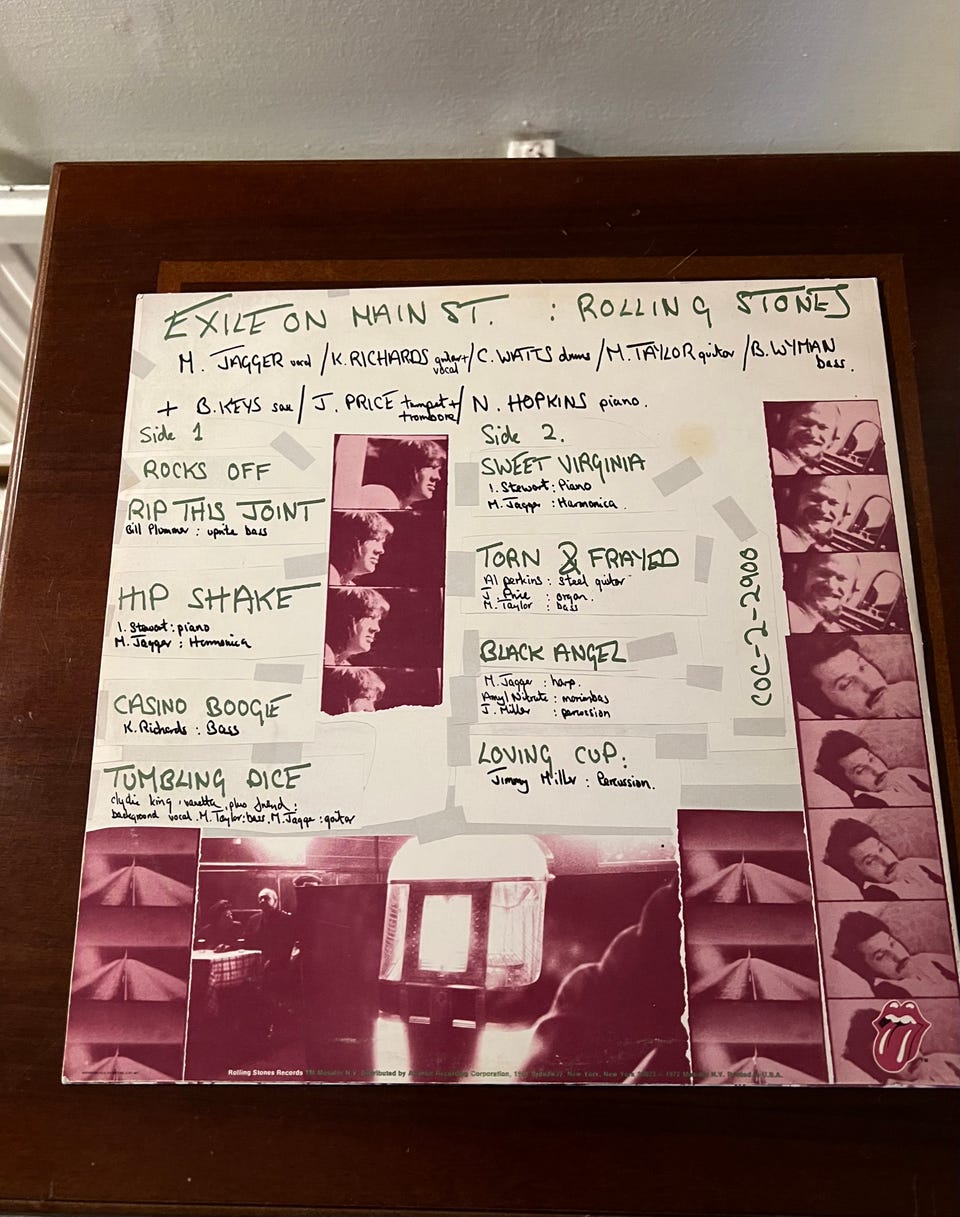 EXILE ON MAIN ST. : ROLLING STONES
M. JAGGER vocal / K. RICHARDS guitar + vocal / C. WATTS drums / M. TAYLOR guitar / B. WYMAN bass.
+ B. KEYS sax / J. PRICE trumpet + trombone / N. HOPKINS piano.
Side 1
ROCKS OFF
RIP THIS JOINT
Bill Plummer : uprite bass
HIP SHAKE
I. Stewart : piano
M. Jagger : Harmonica
CASINO BOOGIE
K. Richards : Bass
TUMBLING DICE
clydie king, vanetta, plus friend :
background vocal. M. Taylor : bass. M. Jagger : guitar
Side 2.
SWEET VIRGINIA
I. Stewart : Piano
M. Jagger : Harmonica.
TORN & FRAYED
Al perkins : Steel guitar
J. Price : organ.
M. Taylor : bass
BLACK ANGEL
M. Jagger : harp.
Amyl Nitrate : marimbas
J. Miller : percussion
LOVING CUP :
Jimmy Miller : Percussion.
COC-2-2900
Rolling Stones Records Distributed by Recording Corporation, New York, New York 1972 N.V. Printed in U.S.A.